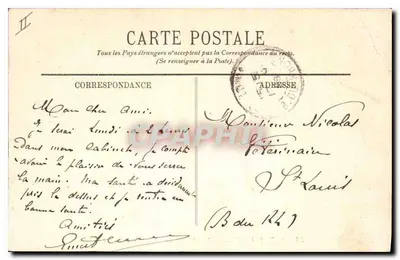 II
CARTE POSTALE
Tous les Pays étrangers n'acceptent pas la Correspondance au recto
(Se renseigner à la Poste).
CORRESPONDANCE
ADRESSE
Mon cher Ami.
Je serai Lundi à 2 heures
dans mon Cabinet, je compte
avoir le plaisir de vous serrer
la main. Ma santé a décidément
pris le dessus et je rentre en
bonne santé.
Amitiés
Monsieur Nicolas
Vétérinaire
St Louis
(B du Rh)